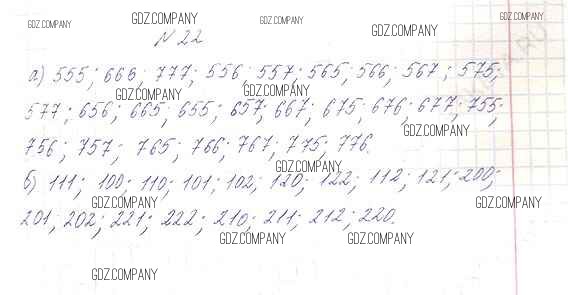 GDZ.COMPANY GDZ.COMPANY GDZ.COMPANY GDZ.COMPANY
GDZ.COMPANY
N 22
а) 555; 666; 777; 556; 557; 565; 566; 567; 575;
GDZ.COMPANY GDZ.COMPANY
577; 656; 665; 655; 657; 667; 675; 676; 677; 755;
GDZ.COMPANY
756; 757; 765; 766; 767; 775; 776.
GDZ.COMPANY
б) 111; 100; 110; 101; 102; 120; 122; 112; 121; 200;
GDZ.COMPANY GDZ.COMPANY
201; 202; 221; 222; 210; 211; 212; 220.
GDZ.COMPANY GDZ.COMPANY
GDZ.COMPANY